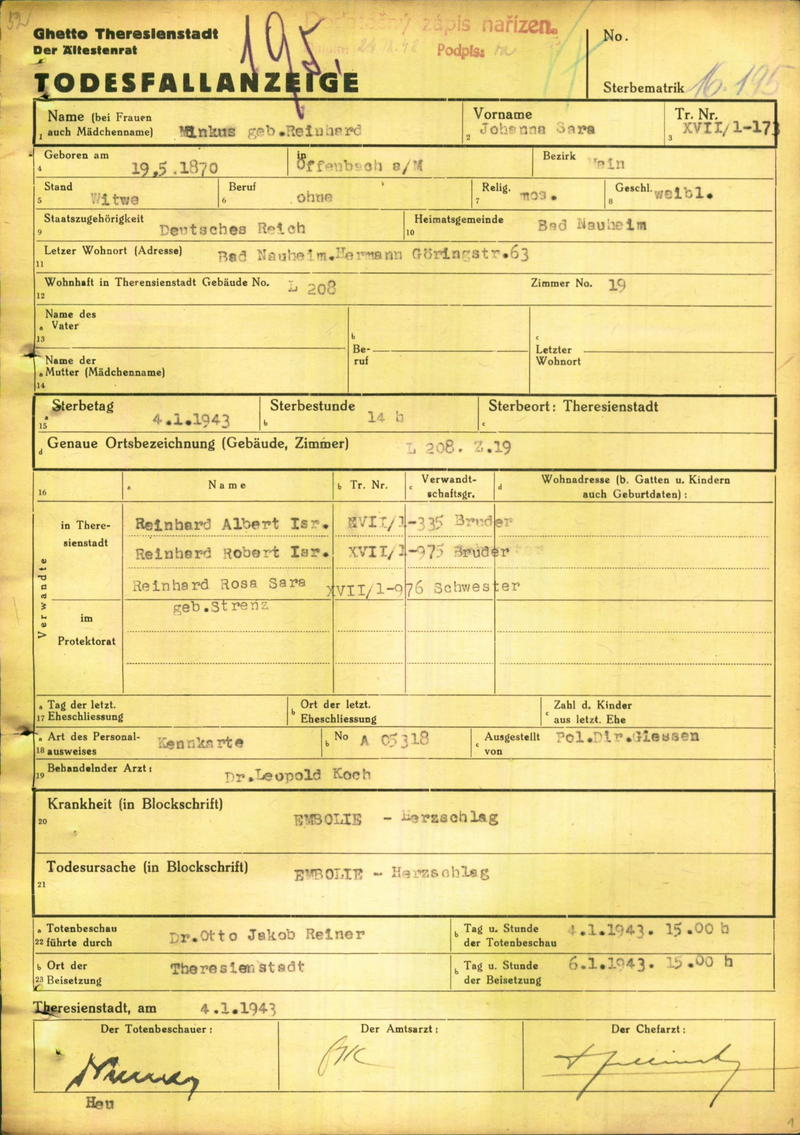 52
Ghetto Theresienstadt
Der Ältestenrat
195
zápis nařízen.
Podpis:
No.
TODESFALLANZEIGE
Sterbematrik 16.195
Name (bei Frauen auch Mädchenname) Minkus geb.Reinhard
1
Vorname Johanna Sara
2
Tr. Nr. XVII/1-173
3
Geboren am 19,5.1870
4
in Offenbach a/M
Bezirk
Stand Witwe
5
Beruf ohne
6
Relig. mos.
7
Geschl. weibl.
8
Staatszugehörigkeit Deutsches Reich
9
Heimatsgemeinde Bad Nauheim
10
Letzer Wohnort (Adresse) Bad Nauheim.Hermann Göringstr.63
11
Wohnhaft in Therensienstadt Gebäude No. L 208
12
Zimmer No. 19
Name des
a Vater
13
b
Be-
ruf
c
Letzter
Wohnort
Name der
a Mutter (Mädchenname)
14
a Sterbetag 4.1.1943
15
b Sterbestunde 14 h
c Sterbeort: Theresienstadt
d Genaue Ortsbezeichnung (Gebäude, Zimmer) L 208. Z.19
16
a Name
b Tr. Nr.
c Verwandt-
schaftsgr.
d Wohnadresse (b. Gatten u. Kindern
auch Geburtdaten):
Verwandte
in There-
sienstadt
Reinhard Albert Isr. XVII/1-335 Bruder
Reinhard Robert Isr. XVII/1-975 Bruder
Reinhard Rosa Sara XVII/1-976 Schwester
geb.Strenz
im
Protektorat
a Tag der letzt.
17 Eheschliessung
b Ort der letzt.
Eheschliessung
c Zahl d. Kinder
aus letzt. Ehe
a Art des Personal-
18 ausweises Kennkarte
b No A 05318
c Ausgestellt
von Pol.Dir.Giessen
19 Behandelnder Arzt: Dr.Leopold Koch
Krankheit (in Blockschrift) EMBOLIE - Herzschlag
20
Todesursache (in Blockschrift) EMBOLIE - Herzschlag
21
a Totenbeschau
22 führte durch Dr.Otto Jakob Reiner
b Tag u. Stunde
der Totenbeschau 4.1.1943. 15.00 h
b Ort der
23 Beisetzung Theresienstadt
b Tag u. Stunde
der Beisetzung 6.1.1943. 15.00 h
Theresienstadt, am 4.1.1943
Der Totenbeschauer:
Der Amtsarzt:
Der Chefarzt:
Heu
1